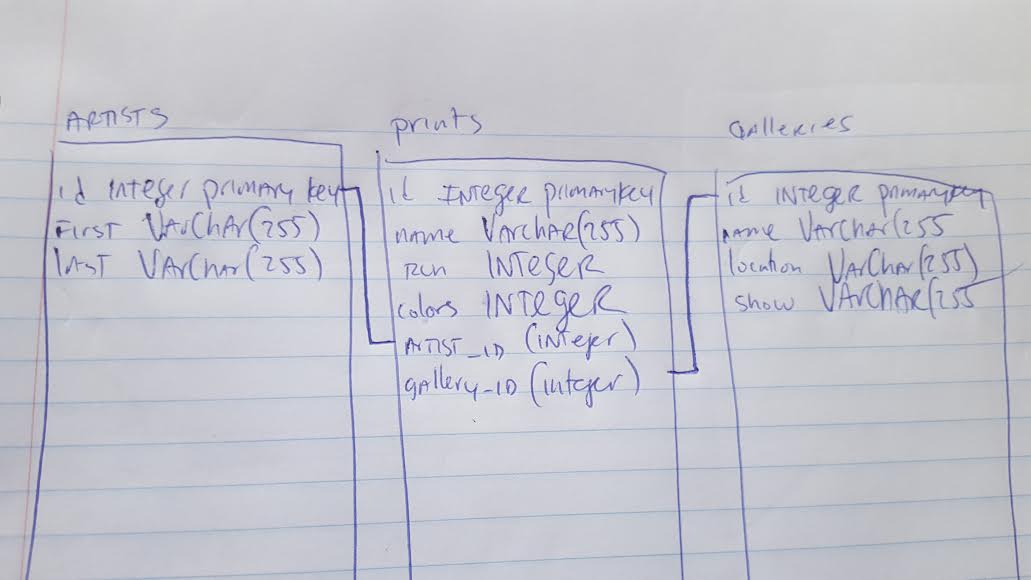 ARTISTS
id Integer primary key
FIRST VARCHAR(255)
last VARChar(255)
prints
id INTEGER primary key
name VARCHAR(255)
run INTEGER
colors INTEGER
ARTIST_ID (integer)
gallery_ID (integer)
Galleries
id INTEGER primary key
name VARCHAR(255
location VARChar(255)
show VARCHAR(255